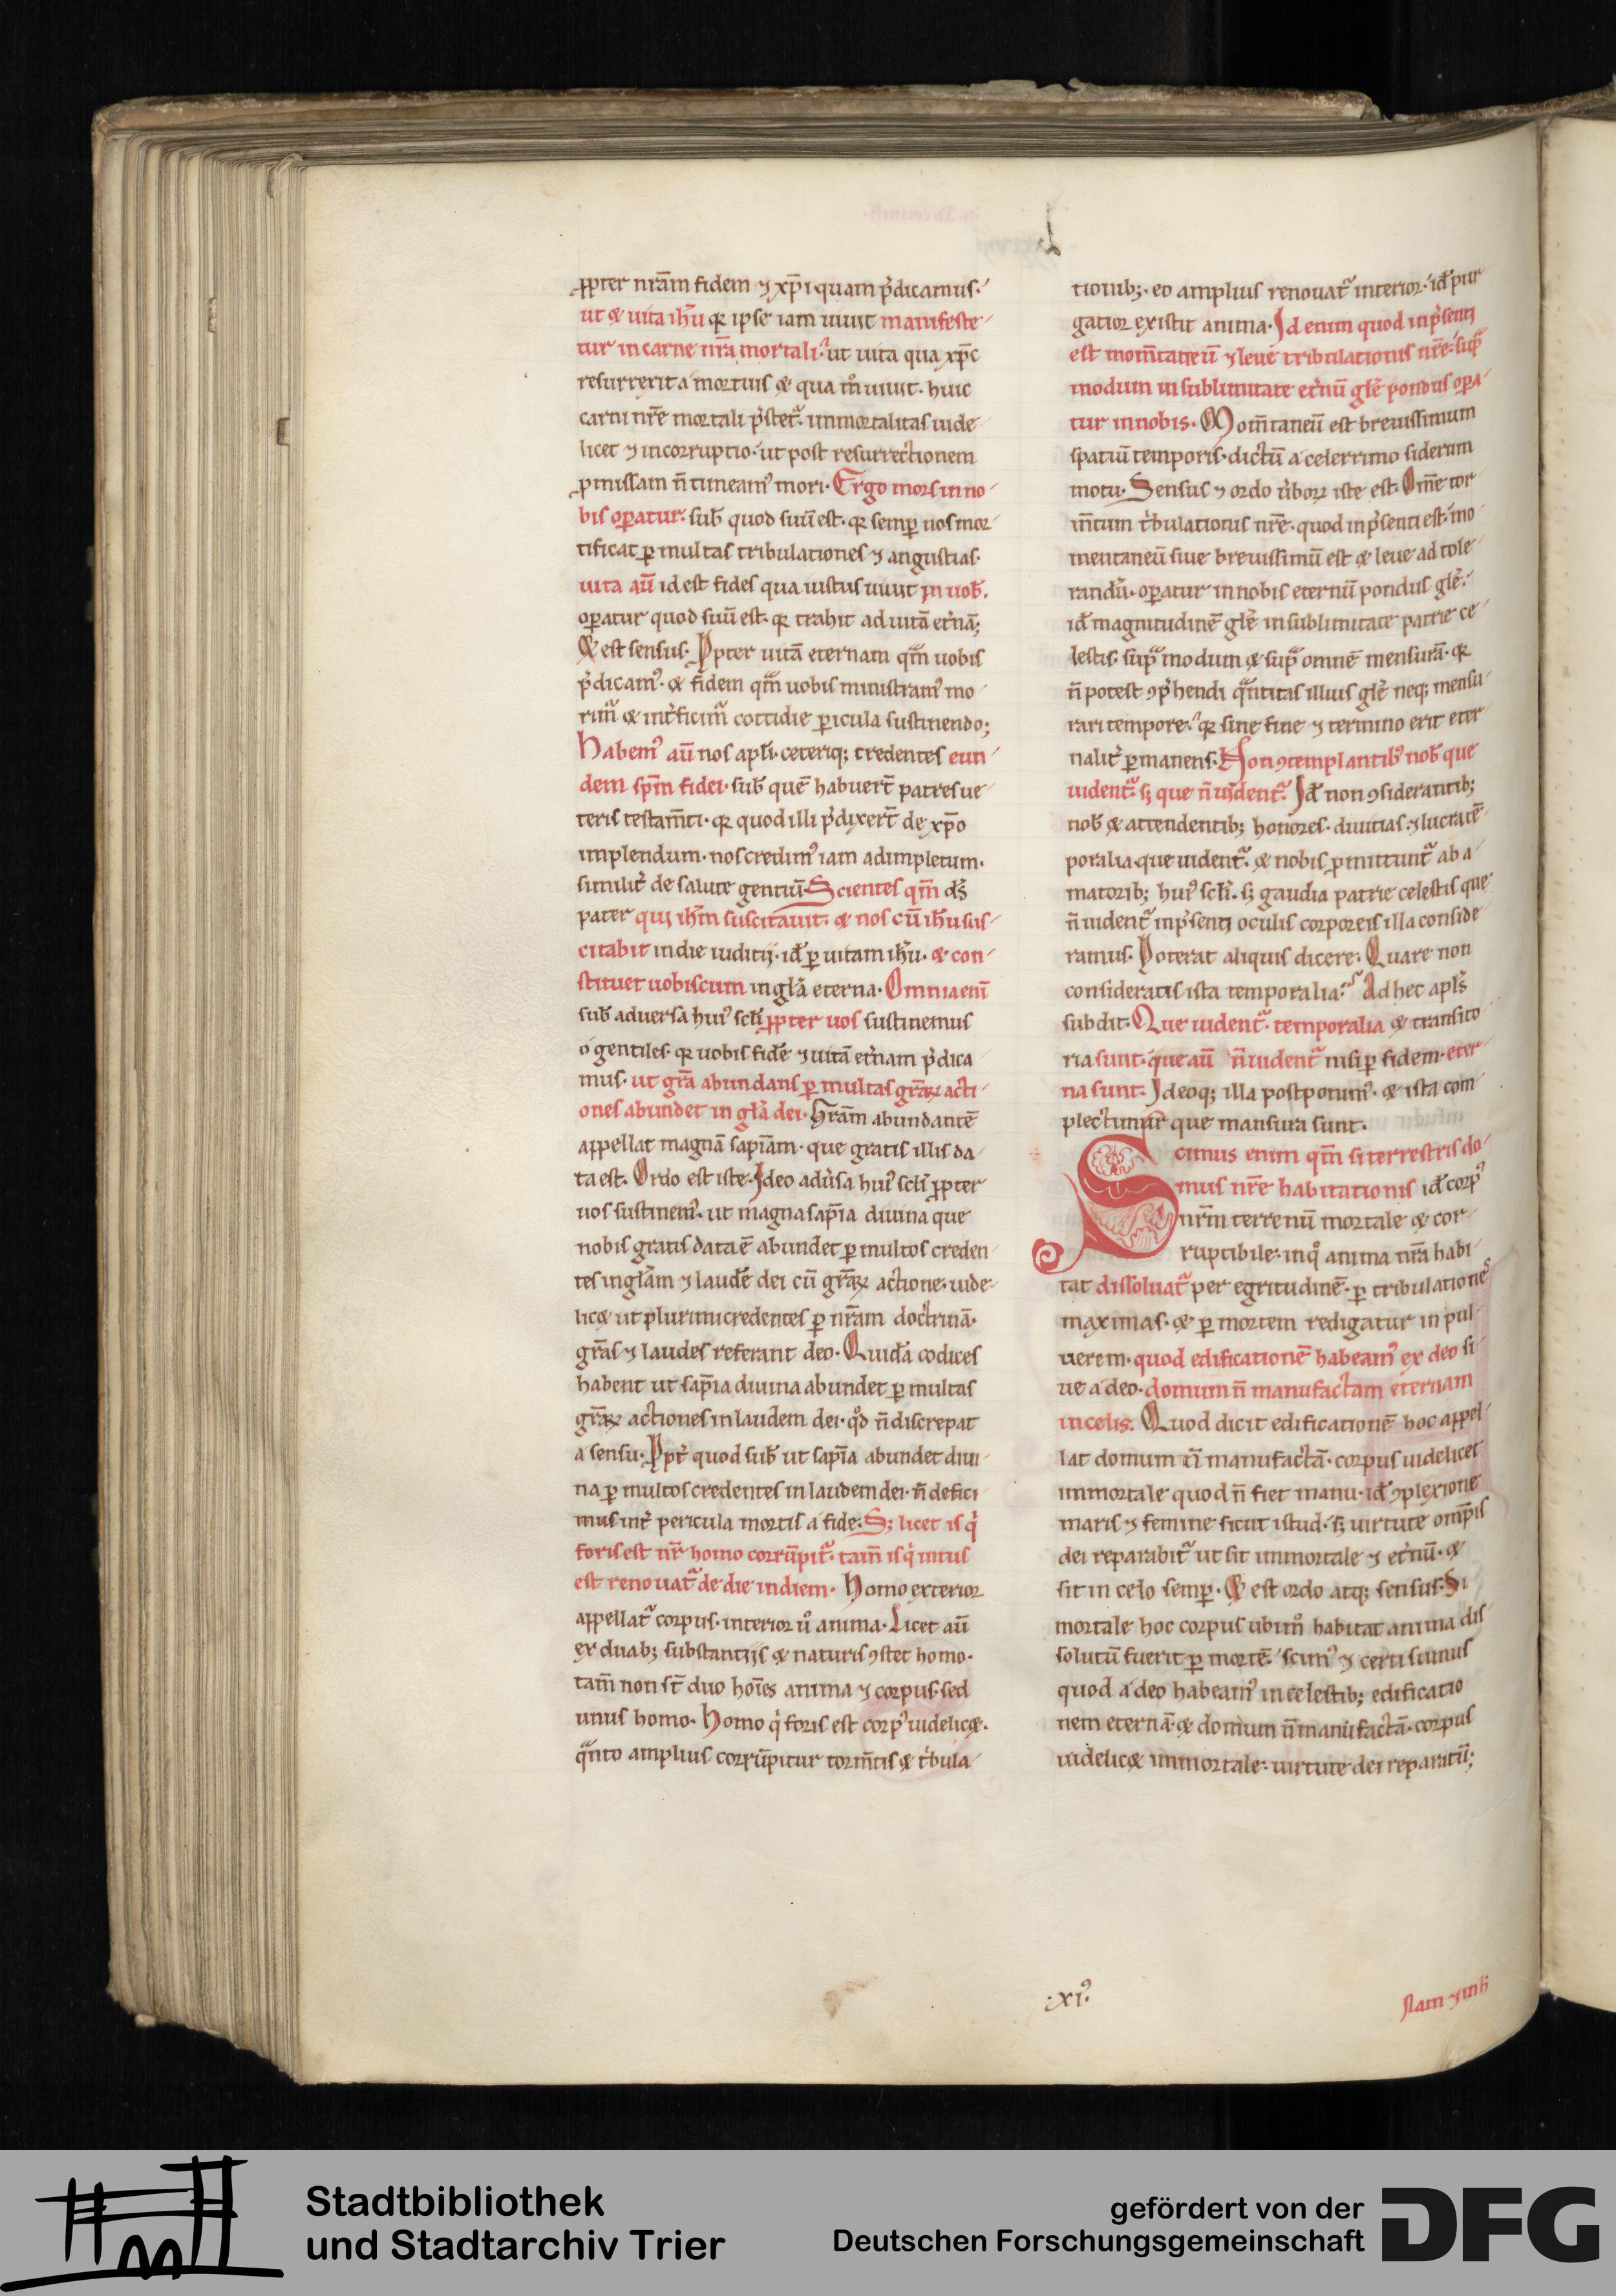 ꝓpter nr̄am fidem ⁊ xp̄i quam p̄dicamus.
ut & uita ih̄u qꝛ ipse iam uiuit manifeste
tur in carne nr̄a mortali. ut uita qua xp̄c
resurrexit a mortuis & qua m̊ uiuit. huic
carni nr̄e mortali p̄stet᷑. immortalitas uide
licet ⁊ incorruptio. ut post resurrectionem
ꝓmissam n̄ timeamꝰ mori. Ergo mors in no
bis oꝑatur. sub̄ quod suū est. qꝛ semꝑ nos mor
tificat ꝑ multas tribulationes ⁊ angustias.
uita aū id est fides qua iustus uiuit in uob̄.
oꝑatur quod suū est. qꝛ trahit ad uitā et̓nā;
& est sensus. Ꝓpter uitā eternam qm̄ uobis
p̄dicamꝰ. & fidem qm̄ uobis ministramꝰ mo
rim᷑ & int̓ficim᷑ cottidie ꝑicula sustinendo;
Habemꝰ aū nos apl̄i. ceteriqꝫ credentes eun
dem sp̄m fidei. sub̄ quē habuert̄ patres ue
teris testam̄ti. qꝛ quod illi p̄dixert̄ de xp̄o
implendum. nos credimꝰ iam adimpletum.
similit̓ de salute gentiū. Scientes qm̄ ds̄
pater qui ih̄m suscitauit. & nos cū ih̄u sus
citabit in die iuditij. id̄ ꝑ uitam ih̄u. & con
stituet uobiscum in gl̄a eterna. Omnia eni̅
sub̄ aduersa huiꝰ scl̄i ꝓpter uos sustinemus
o gentiles. qꝛ uobis fidē ⁊ uitā et̓nam p̄dica
mus. ut gr̄a abundans ꝑ multas gr̄aꝝ acti
ones abundet in gl̄a dei. Gr̄am abundantē
appellat magnā sapiam̄. que gratis illis da
ta est. Ordo est iste. Ideo adūsa huiꝰ scl̄i ꝓpter
uos sustinemꝰ. ut magna sap̄ia diuina que
nobis gratis data ē abundet ꝑ multos creden
tes in gl̄am ⁊ laudē dei cū gr̄aꝝ actione. uide
lic& ut plurimi credentes ꝑ nr̄am doctrinā.
gr̄as ⁊ laudes referant deo. Quidā codices
habent ut sap̄ia diuina abundet ꝑ multas
gr̄aꝝ actiones in laudem dei. qd̊ n̄ discrepat
a sensu. Ꝓpt̓ quod sub̄ ut sap̄ia abundet diui
na ꝑ multos credentes in laudem dei. n̄ defici
mus int̓ pericula mortis a fide. Sꝫ licet is q̓
foris est nr̄ homo corrūpit᷑. tam̄ is q̓ intus
est renouat᷑ de die in diem. Homo exterior
appellat᷑ corpus. interior ů anima. Licet aū
ex duabꝫ substantijs & naturis ꝯstet homo.
tam̄ non st̄ duo hoīes anima ⁊ corpus. sed
unus homo. Homo q̓ foris est corpꝰ uidelic&.
qᷓnto amplius corrūpitur torm̄tis & t̓bula
tionibꝫ. eo amplius renouat᷑ interior. id̄ pur
gatior existit anima. Id enim quod in p̄senti
est mom̄taneū ⁊ leue tribulationis nr̄e. supᷓ
modum in sublimitate et̓nū gl̄e pondus oꝑa
tur in nobis. Mom̄taneū est breuissimum
spatiū temporis. dictū a celerrimo siderum
motu. Sensus ⁊ ordo ůborꝝ iste est. Om̄e tor
m̄tum t̓bulationis nr̄e. quod in p̄senti est mo
mentaneū siue breuissimū est & leue ad tole
randū. oꝑatur in nobis eternū pondus gl̄e.
id̄ magnitudinē gl̄e in sublimitate patrie ce
lestis. supᷓ modum & supᷓ omnē mensurā. qꝛ
n̄ potest ꝯp̄hendi qᷓntitas illius gl̄e neqꝫ mensu
rari tempore. qꝛ sine fine ⁊ termino erit eter
nalit̓ ꝑmanens. Non ꝯtemplantibꝰ nob̄ que
uident᷑. sꝫ que n̄ uident᷑. Id̄ non ꝯsiderantibꝫ
nob̄ & attendentibꝫ honores. diuitias. ⁊ lucra tē
poralia que uident᷑. & nobis ꝓmittunt᷑ ab a
matoribꝫ huiꝰ scl̄i. sꝫ gaudia patrie celestis que
n̄ uident᷑ in p̄senti oculis corporeis illa conside
ramus. Poterat aliquis dicere. Quare non
consideratis ista temporalia? Ad hec apl̄s
subdit. Que uident᷑. temporalia & transito
ria sunt. que aū n̄ uident᷑ nisi ꝑ fidem. eter
na sunt. Ideoqꝫ illa postponimꝰ. & ista com
plectimur que mansura sunt.
Scimus enim qm̄ si terrestris do
mus nr̄e habitationis id̄ corpꝰ
nr̄m terrenū mortale & cor
ruptibile. in q̊ anima nr̄a habi
tat dissoluat᷑ per egritudinē. ꝑ tribulationes
maximas. & ꝑ mortem redigatur in pul
uerem. quod edificationē habeamꝰ ex deo si
ue a deo. domum n̄ manufactam eternam
in celis. Quod dicit edificationē hoc appel
lat domum n̄ manufactā. corpus uidelicet
immortale quod n̄ fiet manu. id̄ ꝯplexione
maris ⁊ femine sicut istud. sꝫ uirtute omp̄is
dei reparabit᷑ ut sit immortale ⁊ et̓nū. &
sit in celo semꝑ. & est ordo atqꝫ sensus. Si
mortale hoc corpus ubi m̊ habitat anima dis
solutū fuerit ꝑ mortē. scimꝰ ⁊ certi sumus
quod a deo habeamꝰ in celestibꝫ edificatio
nem eternā. & domum n̄ manufactā. corpus
uidelic& immortale. uirtute dei reparatū;
.xiꝰ.
Nam ⁊ in h̄
Stadtbibliothek
und Stadtarchiv Trier
gefördert von der
Deutschen Forschungsgemeinschaft
DFG